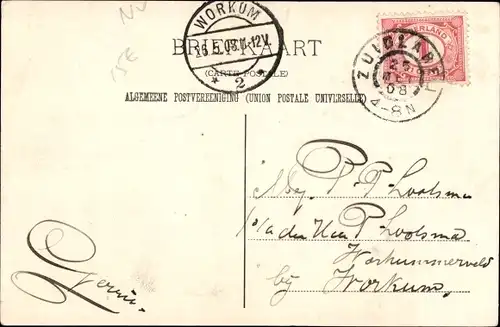 NV
15€
WORKUM
26.5.08.11-12V
2
BRIEFKAART
(CARTE POSTALE)
ALGEMEENE POSTVEREENIGING (UNION POSTALE UNIVERSELLE)
NEDERLAND
1
ZUIDLAREN
08
4-8N
P. P. Lootsma
p/a den Heer P. Lootsma
Workummerveld
bij Workum.
Gerrit.